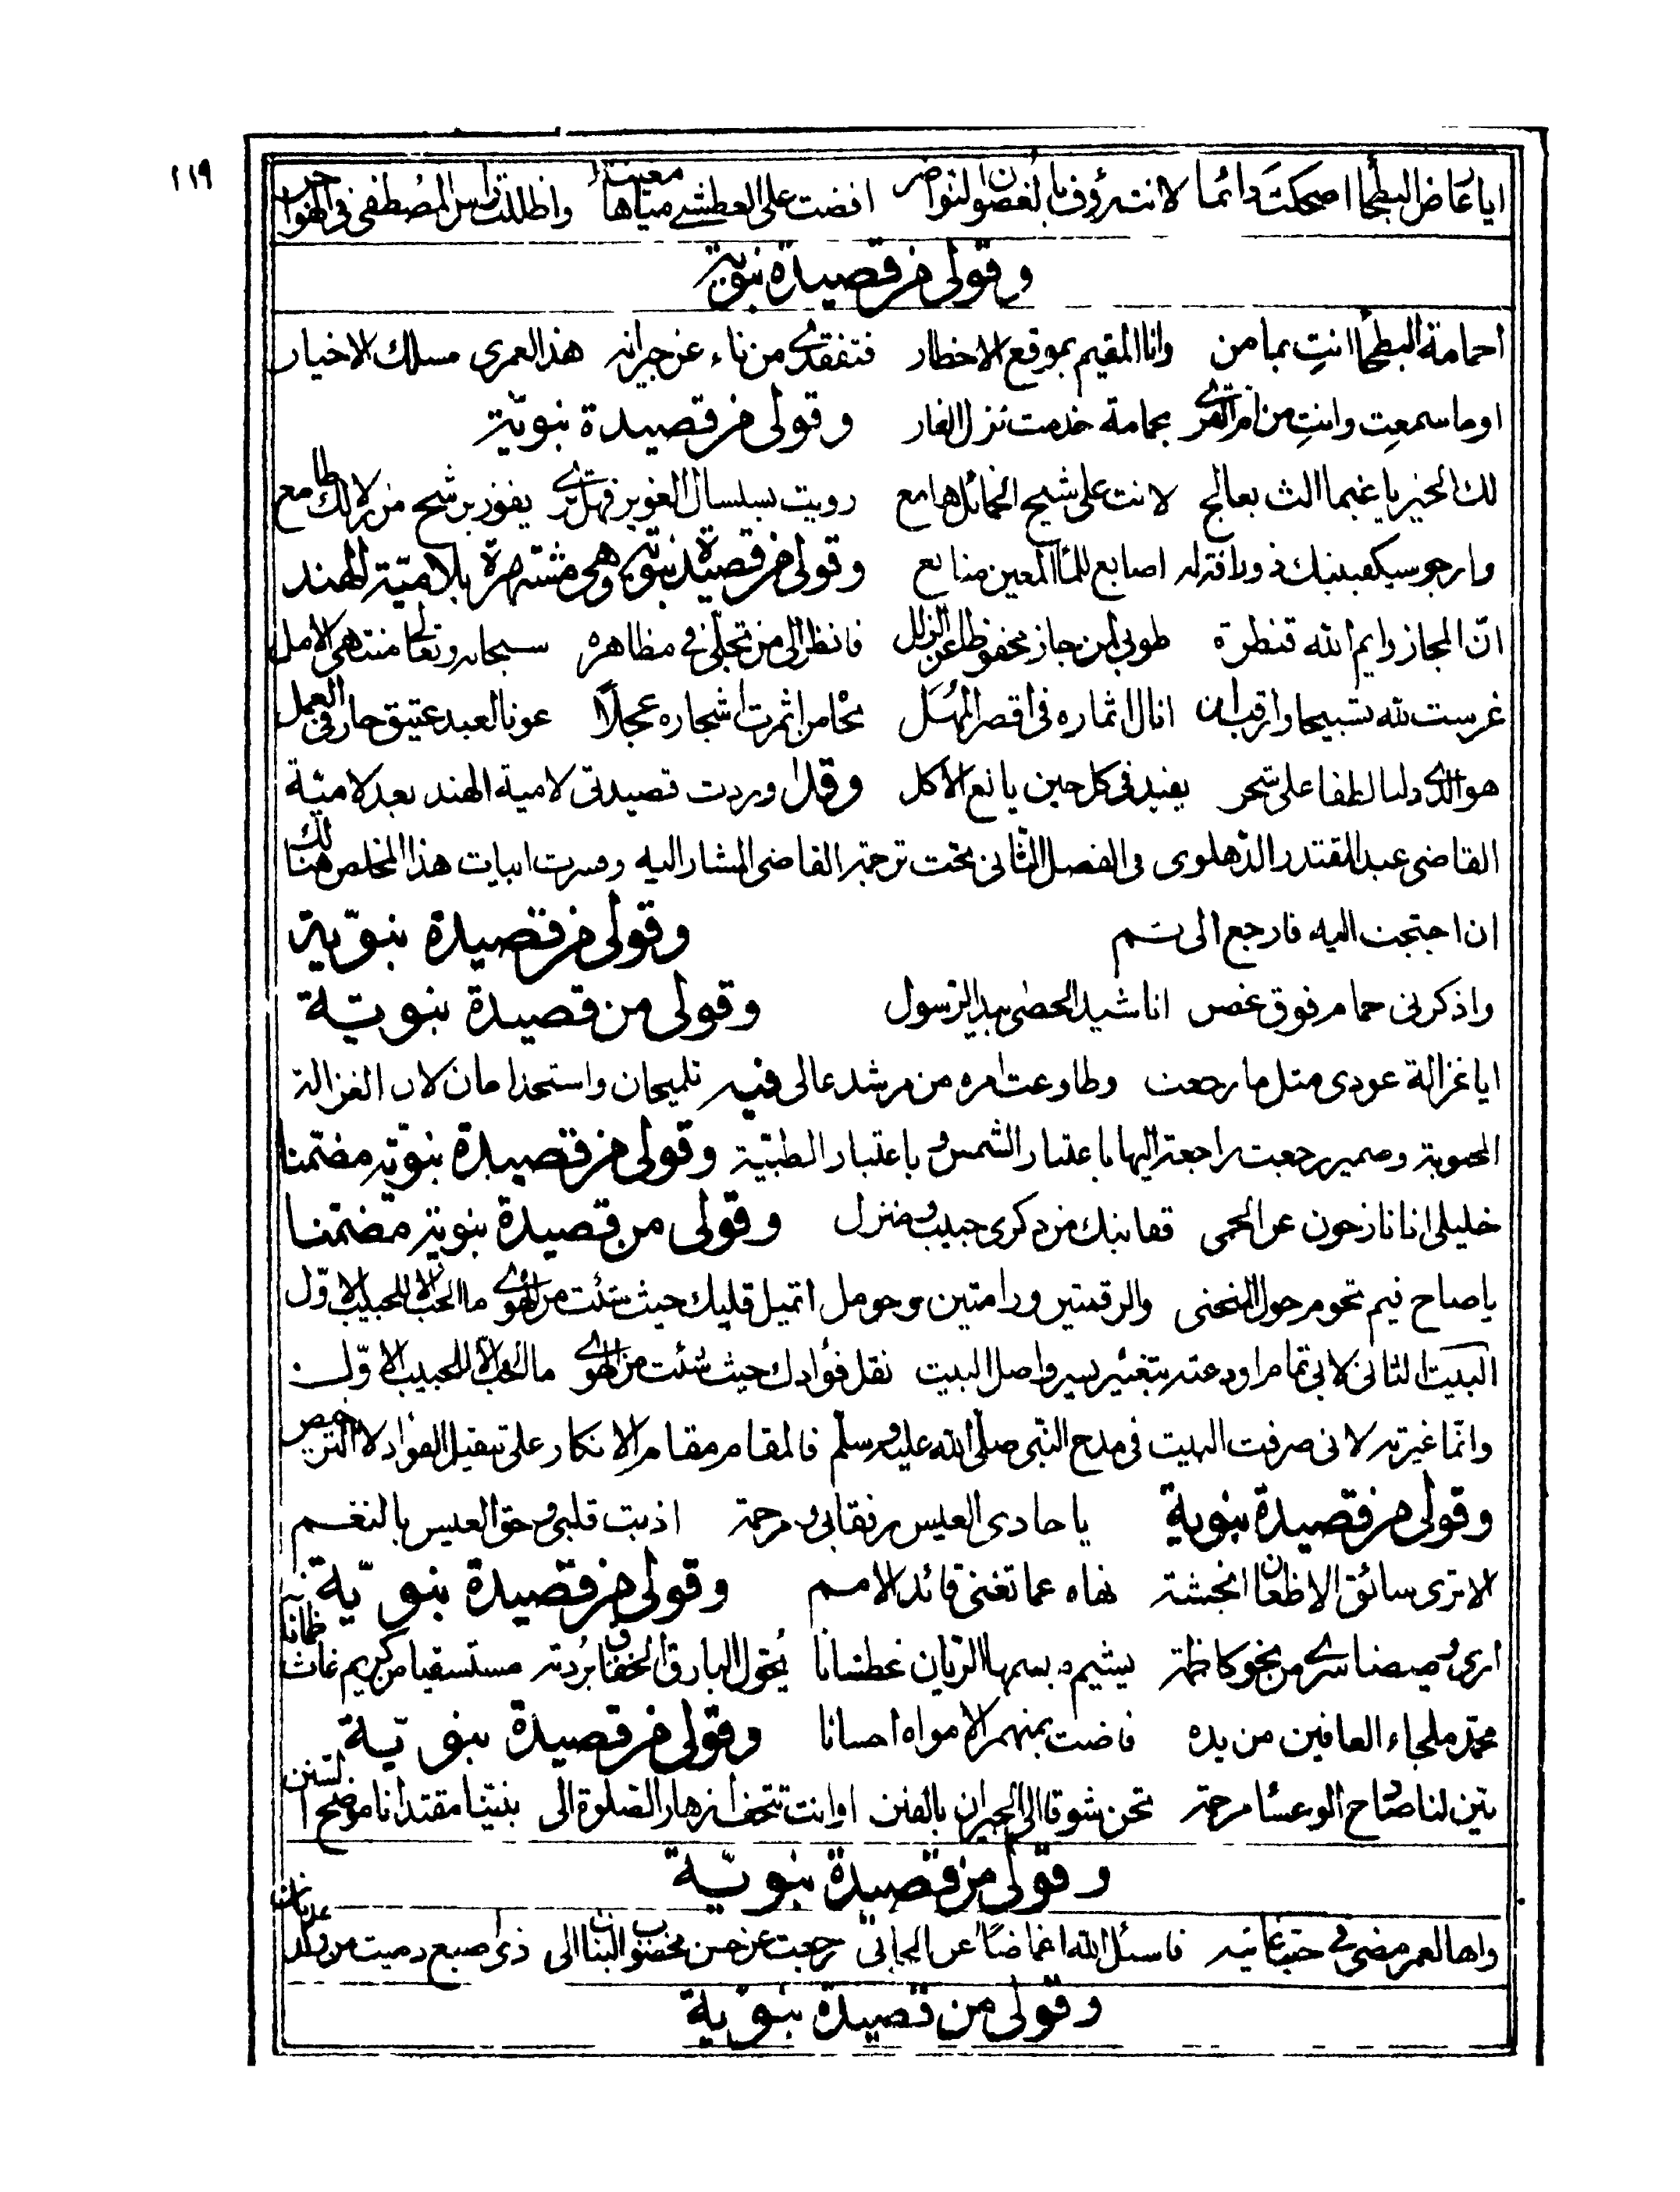 ١١٩
ايا عارض البطحا اضحكت دائما لانت رؤف بالغصون النواضر افضت على العطشى مياها معينة واظللت راس المصطفى في الهواجر
وقولي من قصيدة نبوية
احمامة البطحا انتِ بمامن وانا المقيم بموقع الاخطار فتفقدى من ناء عن جيرانه هذا لعمرى مسلك الاخيار
اوما سمعت وانتِ من ام القرى بحمامة خدمت نزل الغار وقولي من قصيدة نبويّة
لك الخير يا غيما الث بعالج لانت على شيح الخمائل هامع رويت بسلسال الغوير فهل ترى يفوز برشح من زلالك طامع
وارجو سيكفينك اصابع للماء المعين منابع وقولي من قصيدة نبوية وهي مشتهرة بلامية الهند
انّ المجاز وايم الله قنطرة طوبى لمن جاز محفوظا عن الزلل فانظر الى من تجلّى في مظاهره سبحانه وتعالى منتهى الامل
غرست لله تسبيحا وارقب ان انال اثماره في اقصر المهَل نحا من اثمرت اشجاره عجلًا عونا لعبد عتيق حار في العمل
هو الذى دلنا لطفا على شجر يفيد في كل حين يانع الأكل وقد اوردت قصيدتى لامية الهند بعد لاميّة
القاضى عبد المقتدر الدّهلوى في الفصل الثّاني تحت ترجمة القاضى المشار اليه وفسرت ابيات هذا المخلص هنالك
ان احتجت اليه فارجع الى ثم وقولي من قصيدة نبوّية
واذكرنى حمام فوق غصن اناشيد الحصى بيد الرّسول وقولي من قصيدة نبويّة
ايا غزالة عودى مثل ما رجعت وطاوعت امره من مرشد عالى فيه تلميحان واستخدامان لان الغزالة
المحبوبة وضمير رجعت راجع اليها باعتبار الشمس او باعتبار الظبيّة وقولي من قصيدة نبوّية مضمّنا
خليلى انا نازحون عن الحمى قفا نبك من ذكرى حبيب ومنزل وقولي من قصيدة نبوية مضمّنا
يا صاح فيم تحوم حول المنحنى والرقمتين ورامتين وحومل اتميل قلبك حيث شئت من الهوى ما الحبّ الا للحبيب الاوّل
البيت الثانى لابى تمام اودعته بتغيّر يسير واصل البيت نقل فؤادك حيث شئت من الهوى ما الحب الا للحبيب الاوّل
وانّما غيرته لانى صرفت البيت في مدح النّبى صلّى الله عليه وسلّم فالمقام مقام الانكار على تنقيل الفواد لا الترخيص
وقولي من قصيدة نبوية يا حادى العيس رفقا بي ومرحمة اذبت قلبي وحق العيس بالنغم
الا ترى سائق الاظعان انجشة نهاه عما تغنى قائد الامم وقولي من قصيدة نبويّة
ارى وميضا سرى من نحو كاظمة يشيم بسمها الريان عطشانا يُحول البارق الخفاق بُردته مستسقيا من كريم غاث ظمآنا
محمّد ملجاء العافين من يده فاضت بمنهمر الامواه احسانا وقولي من قصيدة نبويّة
بيّن لنا صُداح الوعسا مرحمة نحن شوقا الى الجيران بالفنن او انت تتحف ازهار الصّلوة الى نبيّنا مقتدانا موضح السنن
وقولي من قصيدة نبويّة
واها لعمر مضى في حبّ غانية فاسئل الله اغماضًا عن الجانى رجعت عن حسن مخضوب البنان الى ذى اصبع دميت من ولد عدنان
وقولي من قصيدة نبوية